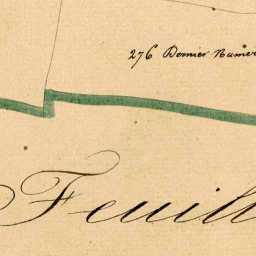 276 Dernier Numér
Feuill